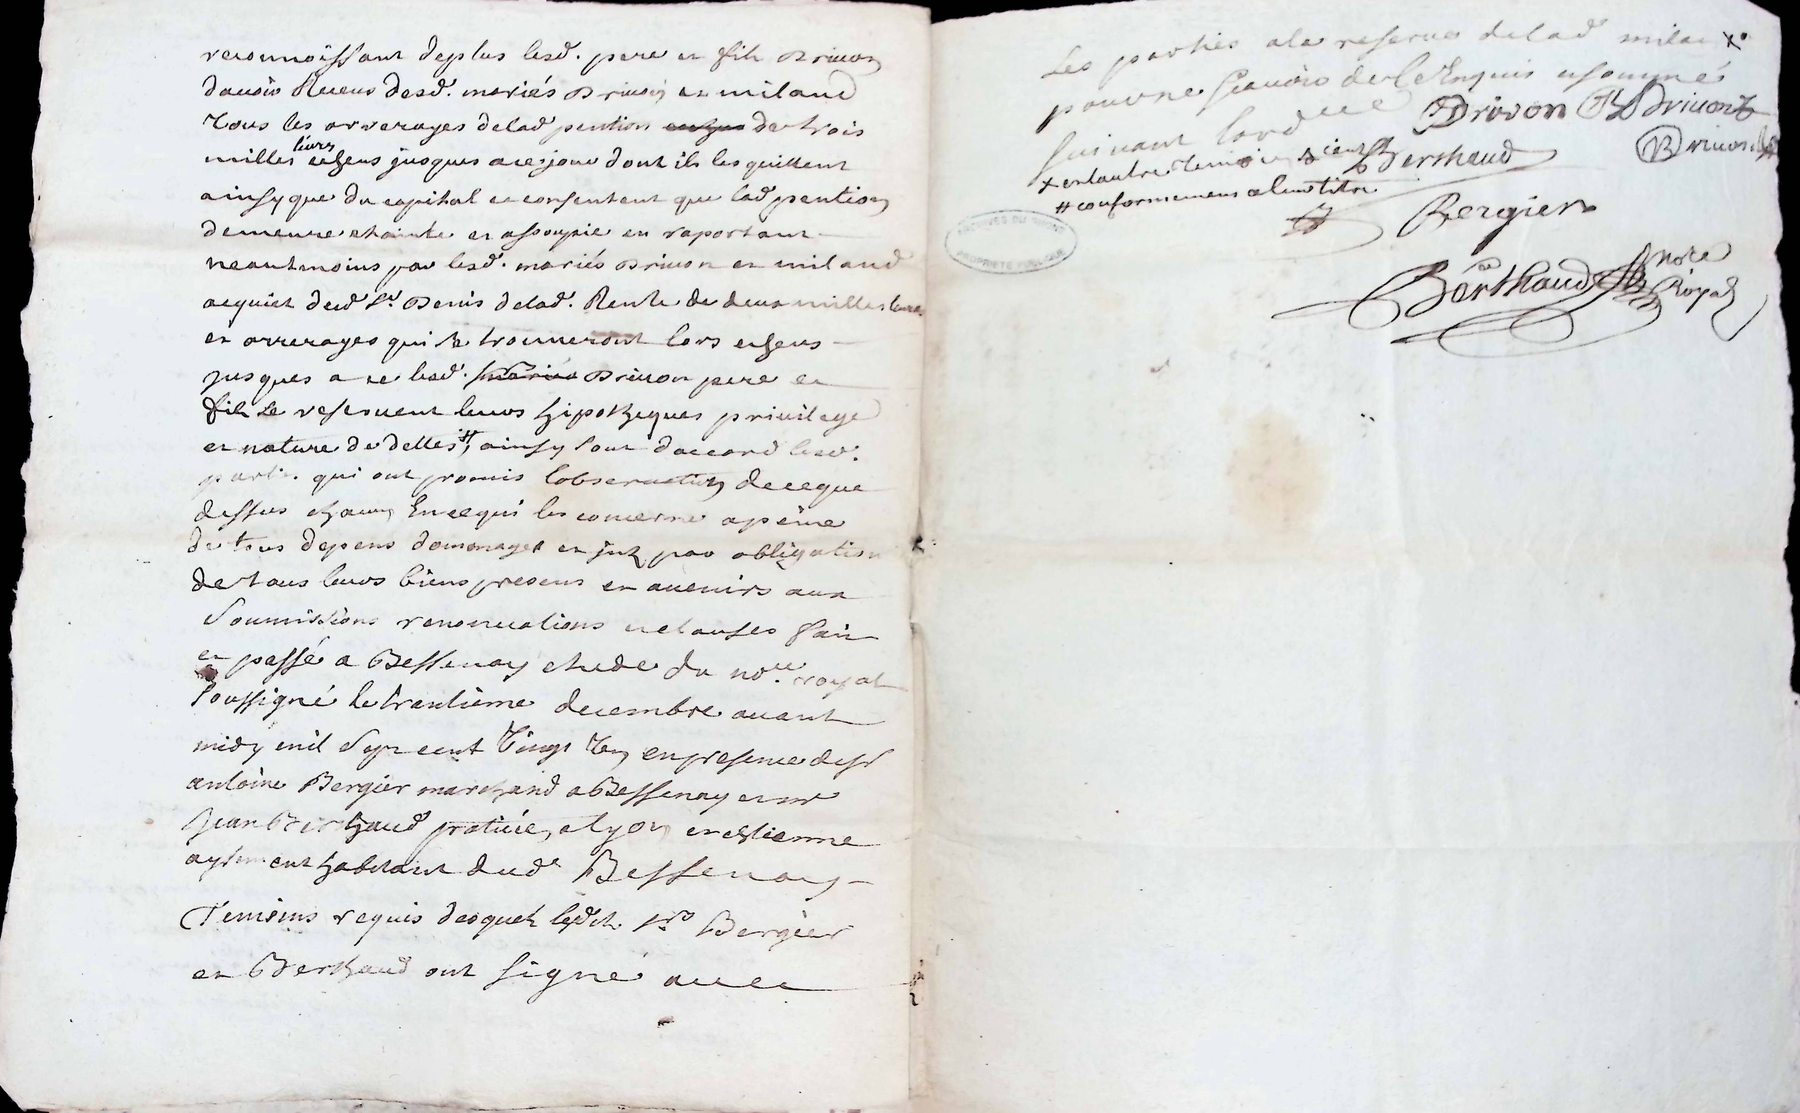 reconnoissant deplus lesd. pere et fils Drivon
davoir Receus desd. mariés Drivon et milaud
tous les arrerages delad pention de trois
milles livres echeus jusques a ce jour dont ils les quittent
ainsy que du capital et consentent que lad pention
demeure etainte et assoupie en raportant
neantmoins par lesd. mariés Drivon et milaud
acquict dud Sr. Denis delad. Rente de deux milles livres
et arrerages qui se trouveront lors echeus
jusques a ce lesd. mariés Drivon pere et
fils se reservent leurs hipotheques privilege
et nature de dettes #, ainsy sont daccord lesd.
parties qui ont promis lobservation de ce que
dessus chacun En ce qui les concerne a peine
de tous depens dommages et intz par obligation
de tous leurs biens presens et avenirs aux
soumissions renonciations et clauses fait
et passé a Bessenay etude du nore. royal
soussigné le trantième decembre avant
midy mil sept cent vingt en presence de sr
antoine Bergier marchand a Bessenay et mr
Jean Berthaud praticien a Lyon et estienne
habitant dud Bessenay
Temoins requis desquels lesdt. srs Bergier
et Berthaud ont signé avec
Les parties a la reserve delad milaud x
pour ne scavoir de ce Enquis et sommés
suivant lord.ce Drivon Drivon
x et lautre temoin Berthaud Drivon
# conformement a leur titre
Bergier
ARCHIVES DU RHONE
PROPRIETE PUBLIQUE
Berthaud nore
Royal